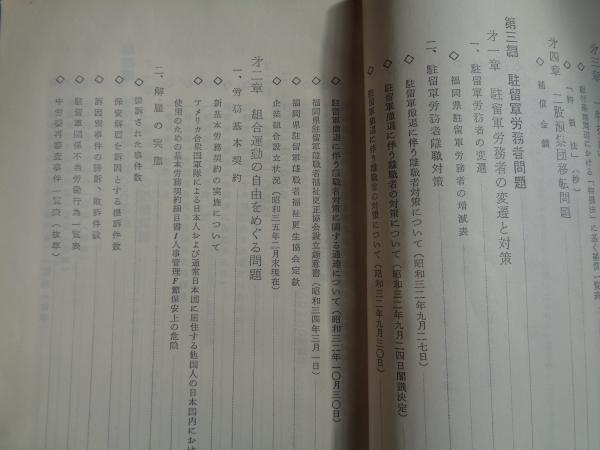 才三章
◇ 駐留軍基地問題における「特損法」に基く補償一覧表
◇ 「特損法」(抄)
才四章 二股部祭団移転問題
◇ 補償金額
第三編 駐留軍労務者問題
才一章 駐留軍労務者の変遷と対策
一、駐留軍労務者の変遷
◇ 福岡県駐留軍労務者の増減表
二、駐留軍労務者離職対策
◇ 駐留軍撤退に伴う離職者対策について(昭和三二年九月二七日)
◇ 駐留軍撤退に伴う離職者の対策について(昭和三二年九月二四日閣議決定)
◇ 駐留軍撤退に伴う離職者の対策について(昭和三二年九月三〇日)
◇ 駐留軍撤退に伴う離職者対策に関する通達について(昭和三二年一〇月三〇日)
◇ 福岡県駐留軍離職者福祉更正協会設立趣意書(昭和三四年三月一日)
◇ 福岡県駐留軍離職者福祉更生協会定款
◇ 企業組合設立状況(昭和三五年二月末現在)
才二章 組合運動の自由をめぐる問題
一、労務基本契約
◇ 新基本労務契約の実施について
◇ アメリカ合衆国軍隊による日本人および通常日本国に居住する他国人の日本国内にお
使用のための基本労務契約細目書I人事管理F節保安上の危険
二、解雇の実態
◇ 提訴された事件数
◇ 保安解雇を訴因とする提訴件数
◇ 訴因別事件の勝訴、敗訴件数
◇ 駐留軍関係不当労働行為一覧表
◇ 中労委再審査事件一覧表(抜萃)